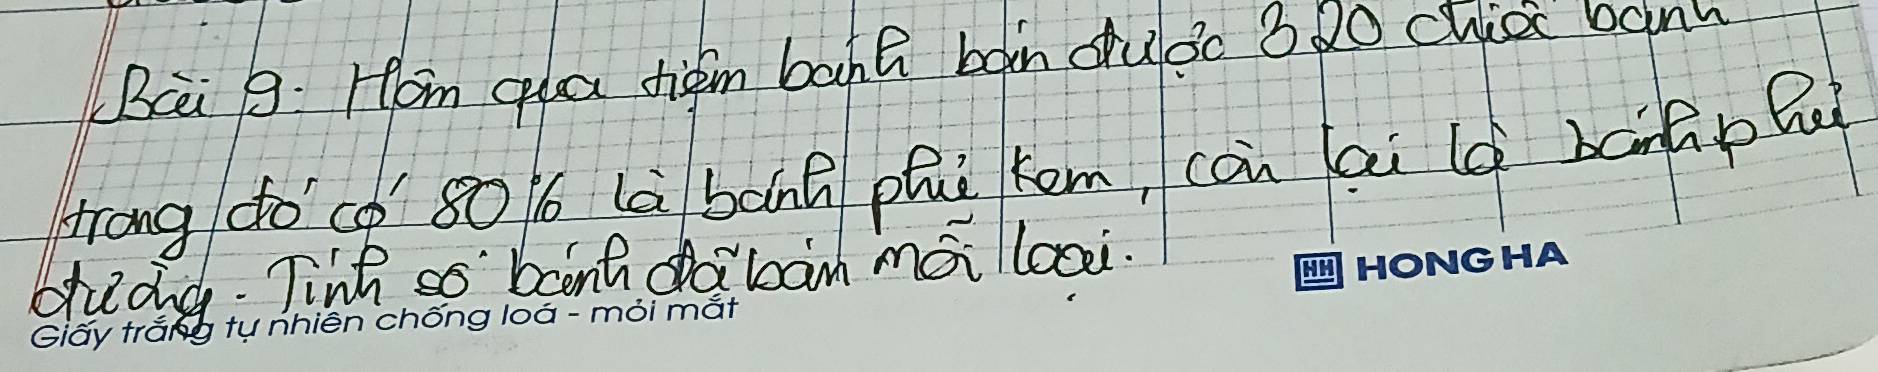 Bài 9: Hôm qua tiệm bánh bán được 320 chiếc bánh
trong đó có 80% là bánh phủ kem, còn lại là bánh phủ
đường. Tính số bánh đã bán mỗi loại.
HH HONG HA
Giấy trắng tự nhiên chống loá - mỏi mắt